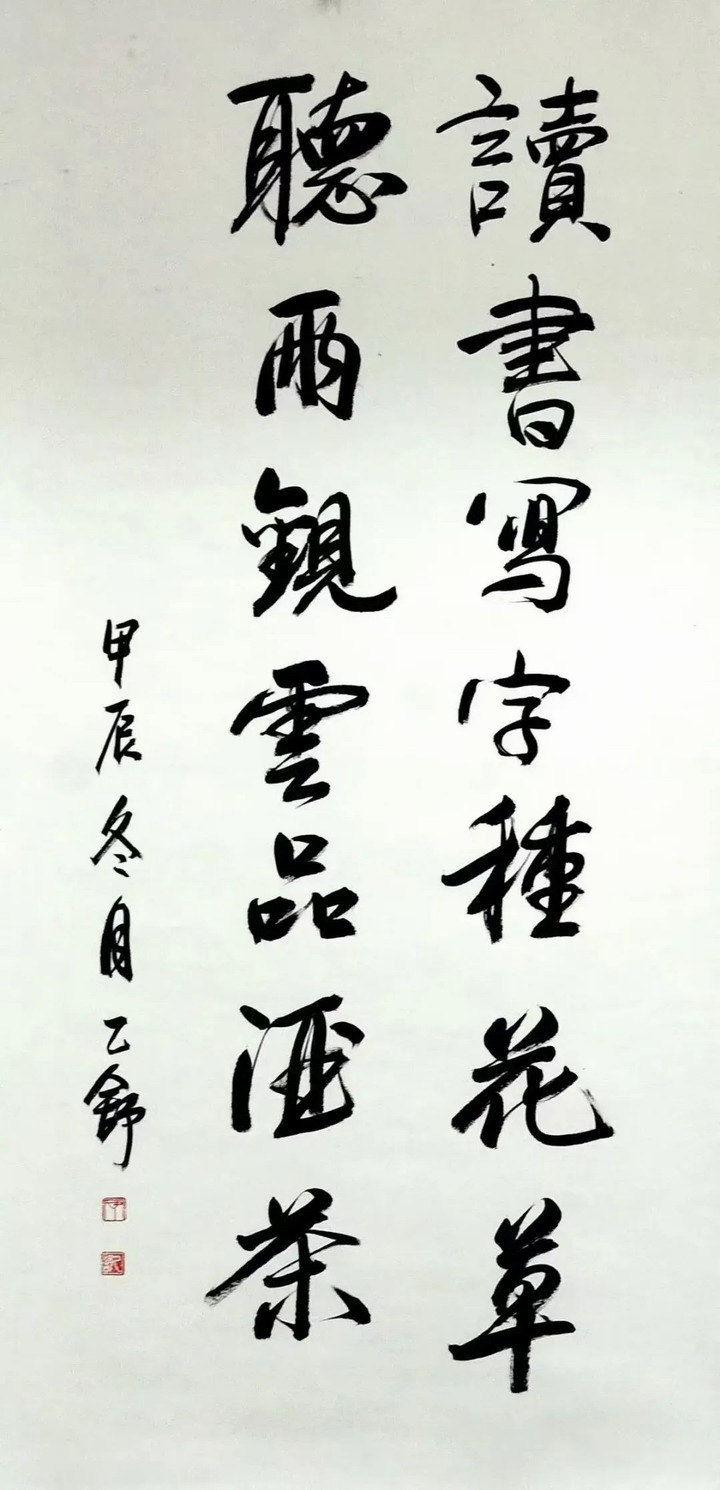 讀書寫字種花草
聽雨觀雲品酒茶
甲辰冬月乙舒